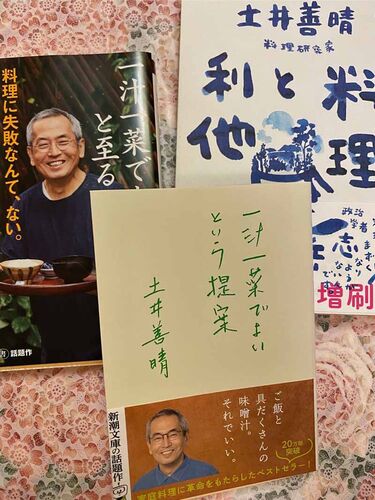 一汁一菜でよ
と至る
料理に失敗なんて、ない。
話題作
土井善晴
料理研究家
料理
と
利他
政治
学者
志
増刷
一汁一菜でよい
という提案
土井善晴
ご飯と
具だくさんの
味噌汁。
それでいい。
20万部
突破
新潮文庫の話題作
家庭料理に革命をもたらしたベストセラー!